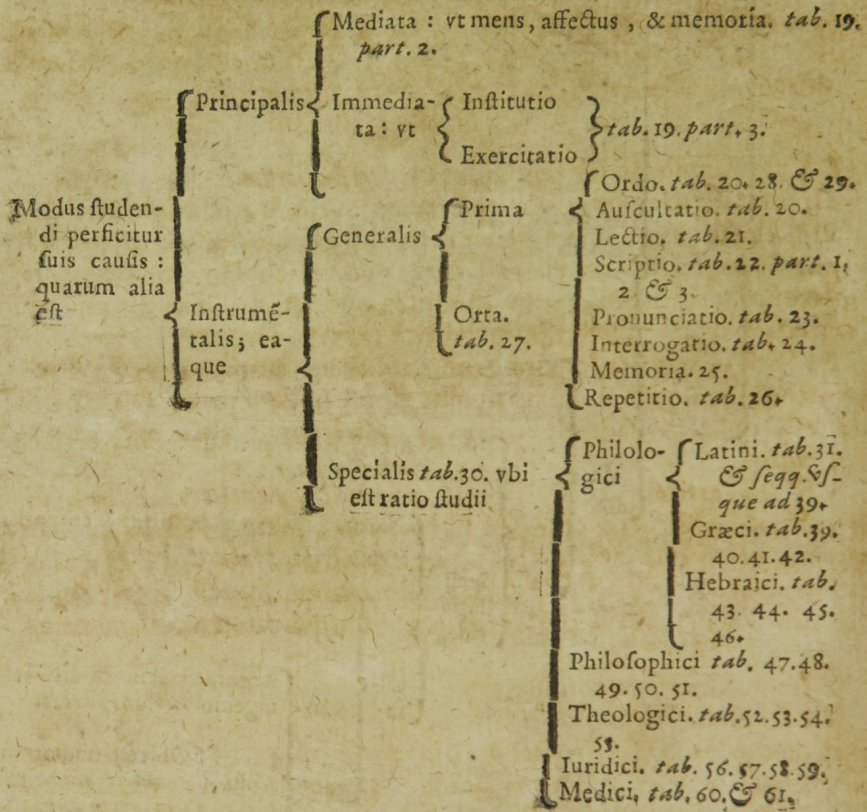 Modus ſtuden-
di perficitur
ſuis cauſis :
quarum alia
eſt
Principalis
Mediata : vt mens, affectus , & memoria. tab. 19.
part. 2.
Immedia-
ta : vt
Inſtitutio
Exercitatio
tab. 19. part. 3.
Inſtrumē-
talis; ea-
que
Generalis
Prima
Ordo. tab. 20. 28. & 29.
Auſcultatio. tab. 20.
Lectio. tab. 21.
Scriptio. tab. 22. part. 1,
2 & 3
Pronunciatio. tab. 23.
Interrogatio. tab. 24.
Memoria. 25.
Repetitio. tab. 26.
Orta.
tab. 27.
Specialis tab. 30. vbi
eſt ratio ſtudii
Philolo-
gici
Latini. tab. 31.
& ſeqq. vſ-
que ad 39.
Græci. tab. 39.
40. 41. 42.
Hebraici. tab.
43. 44. 45.
46.
Philoſophici tab. 47. 48.
49. 50. 51.
Theologici. tab. 52. 53. 54.
55.
Iuridici. tab. 56. 57. 58. 59.
Medici, tab. 60. & 61.